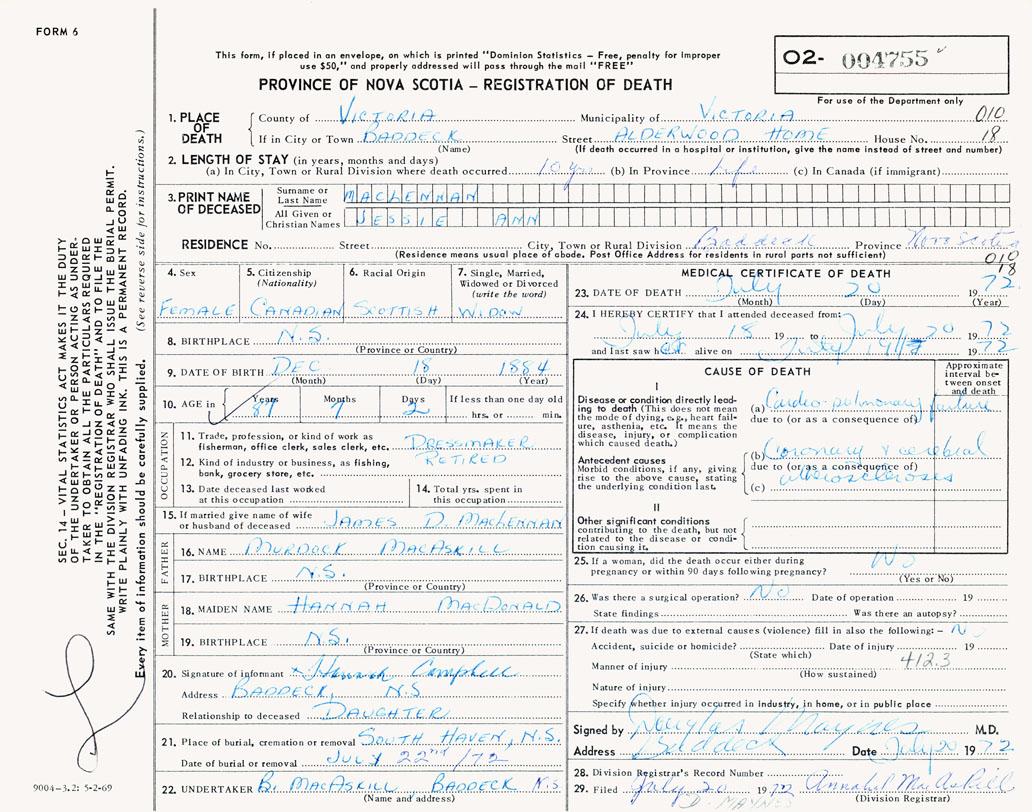 FORM 6
This form, if placed in an envelope, on which is printed "Dominion Statistics – Free, penalty for improper
use $50," and properly addressed will pass through the mail "FREE"
PROVINCE OF NOVA SCOTIA – REGISTRATION OF DEATH
02- 004755
For use of the Department only
SEC. 14 – VITAL STATISTICS ACT MAKES IT THE DUTY
OF THE UNDERTAKER OR PERSON ACTING AS UNDER-
TAKER TO OBTAIN ALL THE PARTICULARS REQUIRED
IN THE "REGISTRATION OF DEATH" AND TO FILE THE
SAME WITH THE DIVISION REGISTRAR WHO SHALL ISSUE THE BURIAL PERMIT.
WRITE PLAINLY WITH UNFADING INK. THIS IS A PERMANENT RECORD.
Every item of information should be carefully supplied. (See reverse side for instructions.)
1. PLACE OF DEATH
County of VICTORIA Municipality of VICTORIA 010
If in City or Town BADDECK Street ALDERWOOD HOME House No. 18
(Name) (If death occurred in a hospital or institution, give the name instead of street and number)
2. LENGTH OF STAY (in years, months and days)
(a) In City, Town or Rural Division where death occurred 10 yrs (b) In Province Life (c) In Canada (if immigrant)
3. PRINT NAME OF DECEASED
Surname or Last Name MACLENNAN
All Given or Christian Names JESSIE ANN
RESIDENCE No. Street City, Town or Rural Division Baddeck Province Nova Scotia
(Residence means usual place of abode. Post Office Address for residents in rural parts not sufficient) 010
18
4. Sex
FEMALE
5. Citizenship (Nationality)
CANADIAN
6. Racial Origin
SCOTTISH
7. Single, Married, Widowed or Divorced (write the word)
WIDOW
8. BIRTHPLACE N.S.
(Province or Country)
9. DATE OF BIRTH DEC 18 1884
(Month) (Day) (Year)
10. AGE in Years 87 Months 7 Days 2 If less than one day old
hrs. or min.
OCCUPATION
11. Trade, profession, or kind of work as
fisherman, office clerk, sales clerk, etc. DRESSMAKER
12. Kind of industry or business, as fishing, RETIRED
bank, grocery store, etc.
13. Date deceased last worked
at this occupation
14. Total yrs. spent in
this occupation
15. If married give name of wife
or husband of deceased JAMES D. MACLENNAN
FATHER
16. NAME MURDOCK MACASKILL
17. BIRTHPLACE N.S.
(Province or Country)
MOTHER
18. MAIDEN NAME HANNAH MACDONALD
19. BIRTHPLACE N.S.
(Province or Country)
20. Signature of informant x Hannah Campbell
Address BADDECK, N.S
Relationship to deceased DAUGHTER
21. Place of burial, cremation or removal SOUTH HAVEN, N.S.
Date of burial or removal JULY 22nd /72
22. UNDERTAKER B. MACASKILL BADDECK N.S
(Name and address)
9004–3.2: 5-2-69
MEDICAL CERTIFICATE OF DEATH
23. DATE OF DEATH July 20 1972.
(Month) (Day) (Year)
24. I HEREBY CERTIFY that I attended deceased from:
July 18 19 to July 20 1972
and last saw her alive on July 19 1972
CAUSE OF DEATH
Approximate interval between onset and death
I
Disease or condition directly lead-
ing to death (This does not mean
the mode of dying, e.g., heart fail-
ure, asthenia, etc. It means the
disease, injury, or complication
which caused death.)
(a) Cardio-pulmonary failure
due to (or as a consequence of)
Antecedent causes
Morbid conditions, if any, giving
rise to the above cause, stating
the underlying condition last.
(b) Coronary & cerebral
due to (or as a consequence of)
atherosclerosis
(c)
II
Other significant conditions
contributing to the death, but not
related to the disease or condi-
tion causing it.
25. If a woman, did the death occur either during
pregnancy or within 90 days following pregnancy? NO
(Yes or No)
26. Was there a surgical operation? NO Date of operation 19
State findings Was there an autopsy?
27. If death was due to external causes (violence) fill in also the following: –
Accident, suicide or homicide? Date of injury 19
(State which)
Manner of injury 412.3
(How sustained)
Nature of injury
Specify whether injury occurred in industry, in home, or in public place
Signed by Douglas Maynes M.D.
Address Baddeck Date July 20 1972
28. Division Registrar's Record Number
29. Filed July 20 1972 Annabel MacAskill
D. MAYNES (Division Registrar)